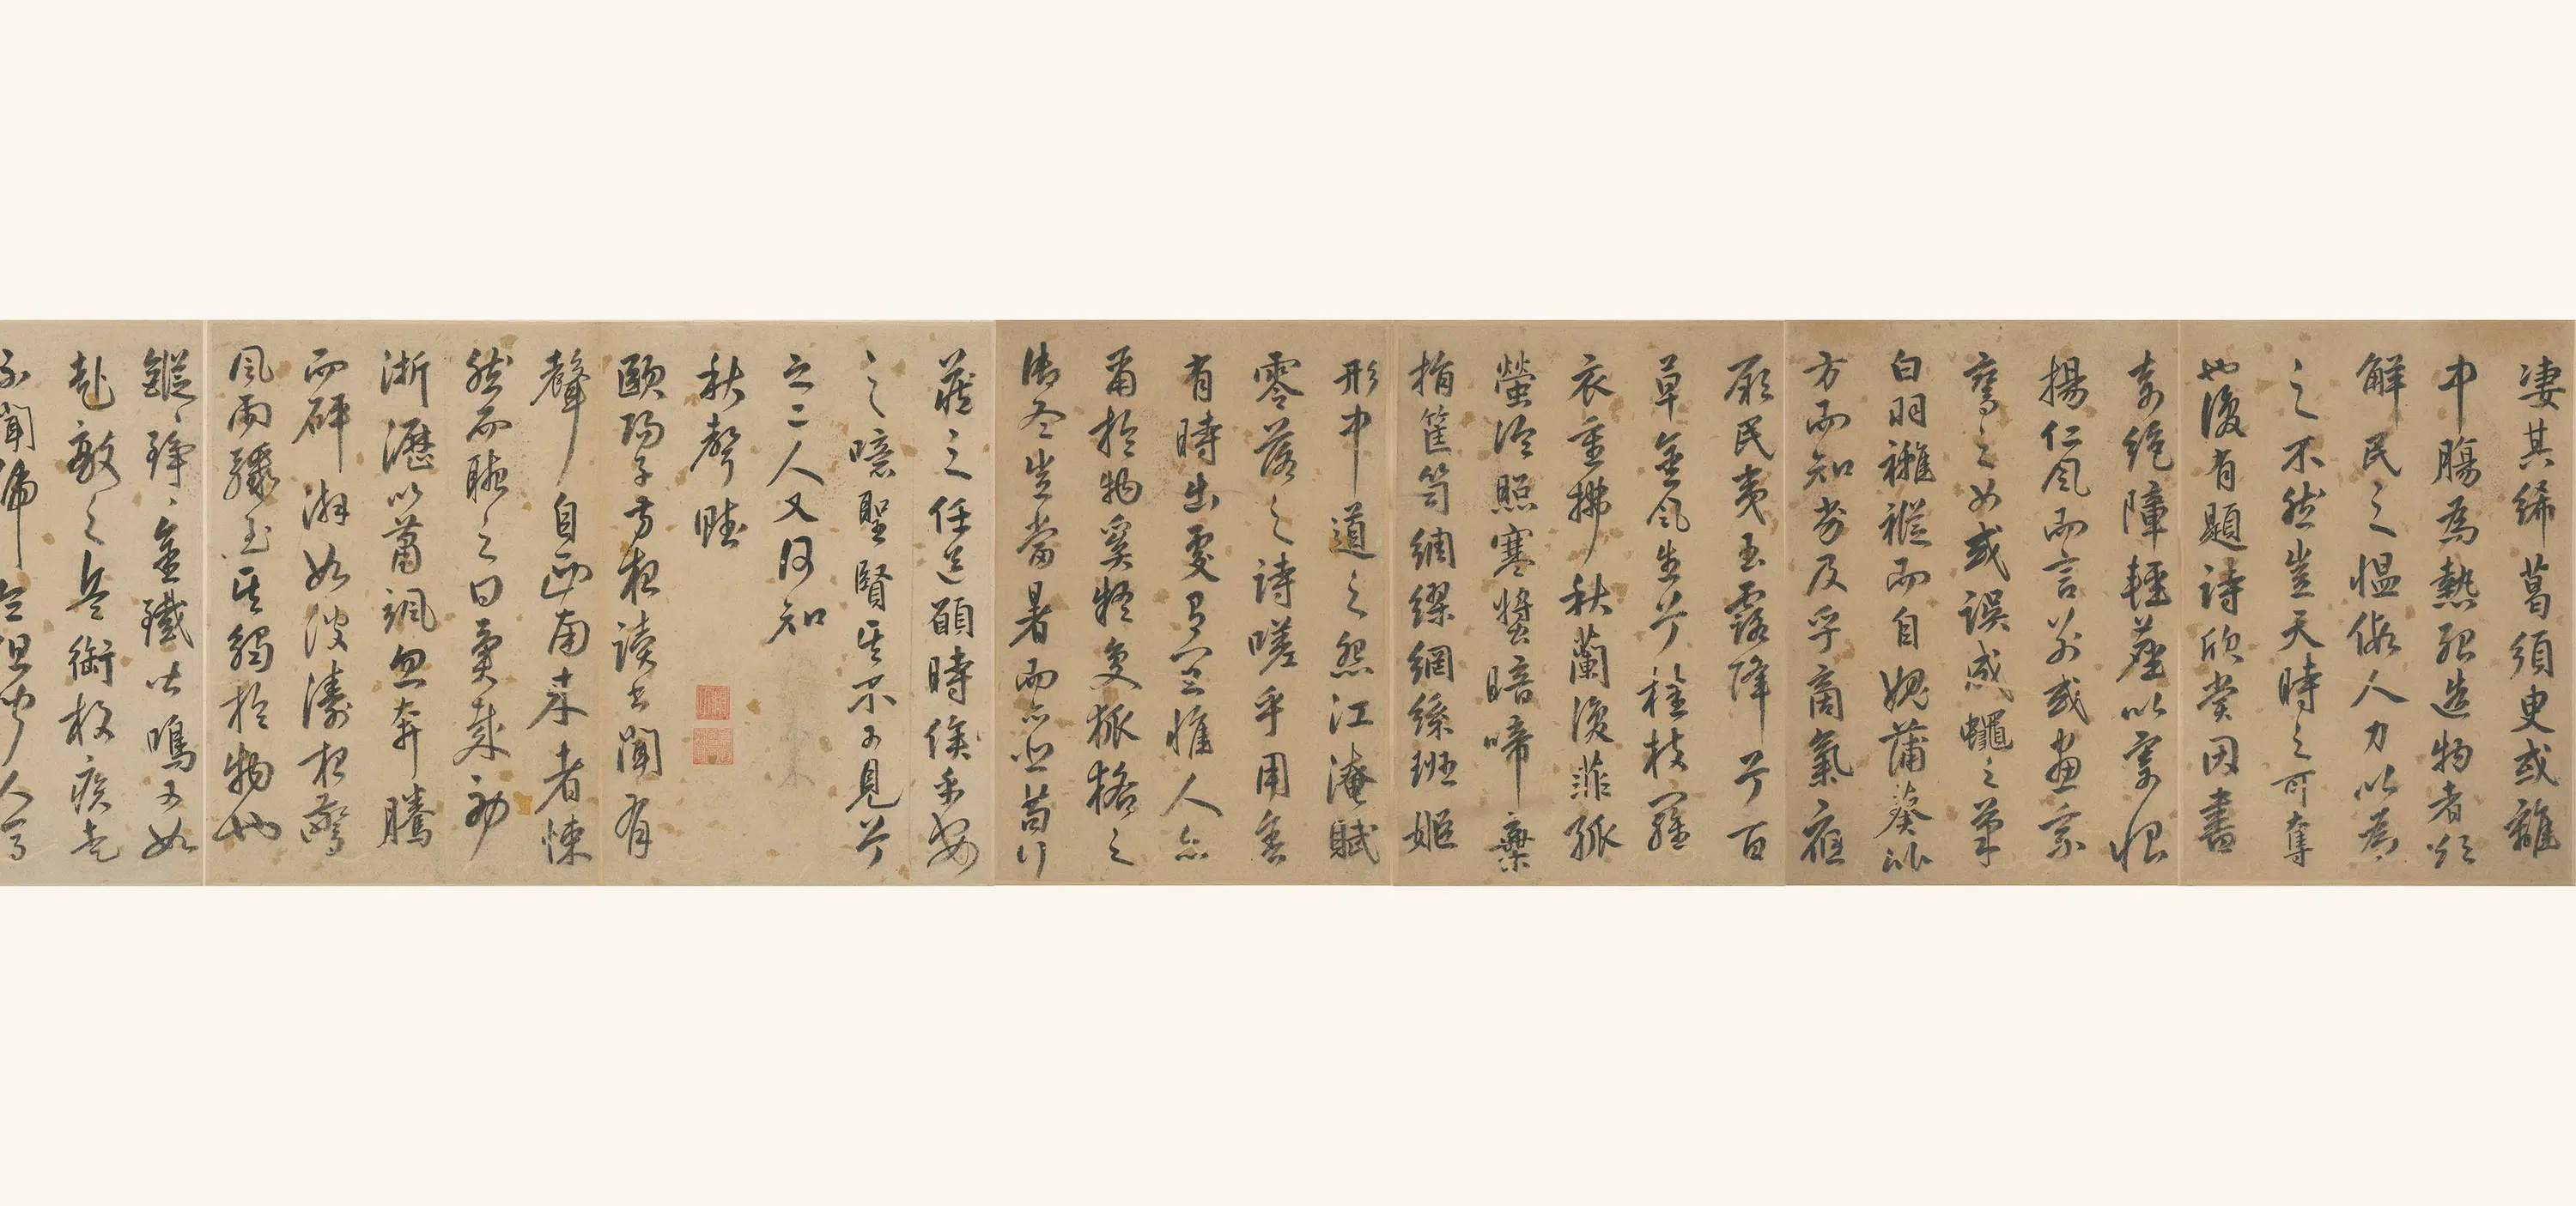 淒其絺葛須臾或離
中腸為熱非造物者欲
解民之慍假人力以為
之不然豈天時之可奪
也後有題詩欣賞因書
素絕障輕塵以寄恨
揚仁風而言前或畫案
鸞之女或誤成蠅之筆
白羽襳褷而自媿蒲葵以
方而知劣及乎商氣應
氐民夷玉露降兮百
草金風生兮桂枝羅
衣重拂秋蘭後菲孤
螢冷照寒螿暗啼棄
捐篋笥綢繆網絲班姬
形中道之怨江淹賦
零落之詩嗟乎用舍
有時出處有宜惟人亦
爾於物奚疑夏狐柩之
御冬豈當暑而亦然苟行
藏之任運顧時候乎安
之噫聖賢其不可見兮
之二人又何知
秋聲賦
歐陽子方夜讀書聞有
聲自西南來者悚
然而聽之曰異哉初
淅瀝以蕭颯忽奔騰
而砰湃如波濤夜驚
風雨驟至其觸於物也
鏦鏦錚錚金鐵皆鳴又如
赴敵之兵銜枚疾走
不聞號令但聞人馬